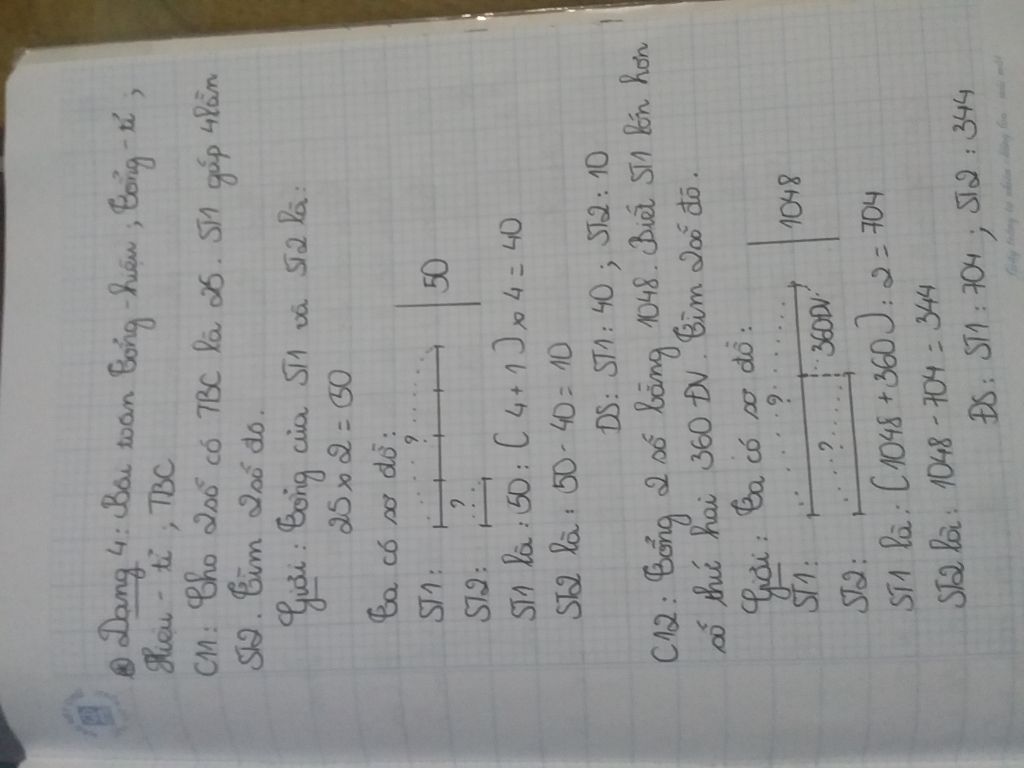 Dạng 4: Bài toán tổng-hiệu; tổng-tỉ;
Hiệu-tỉ; TBC
C11: Cho 2 số có TBC là 25. ST1 gấp 4 lần
ST2. Tìm 2 số đó.
Giải: Tổng của ST1 và ST2 là:
25 x 2 = 50
Ta có sơ đồ:
ST1: ? 50
ST2: ?
ST1 là: 50 : (4 + 1) x 4 = 40
ST2 là: 50 - 40 = 10
ĐS: ST1: 40; ST2: 10
C12: Tổng 2 số bằng 1048. Biết ST1 lớn hơn
số thứ hai 360 ĐV. Tìm 2 số đó.
Giải: Ta có sơ đồ:
ST1: ? 1048
ST2: ? 360ĐV
ST1 là: (1048 + 360) : 2 = 704
ST2 là: 1048 - 704 = 344
ĐS: ST1: 704; ST2: 344